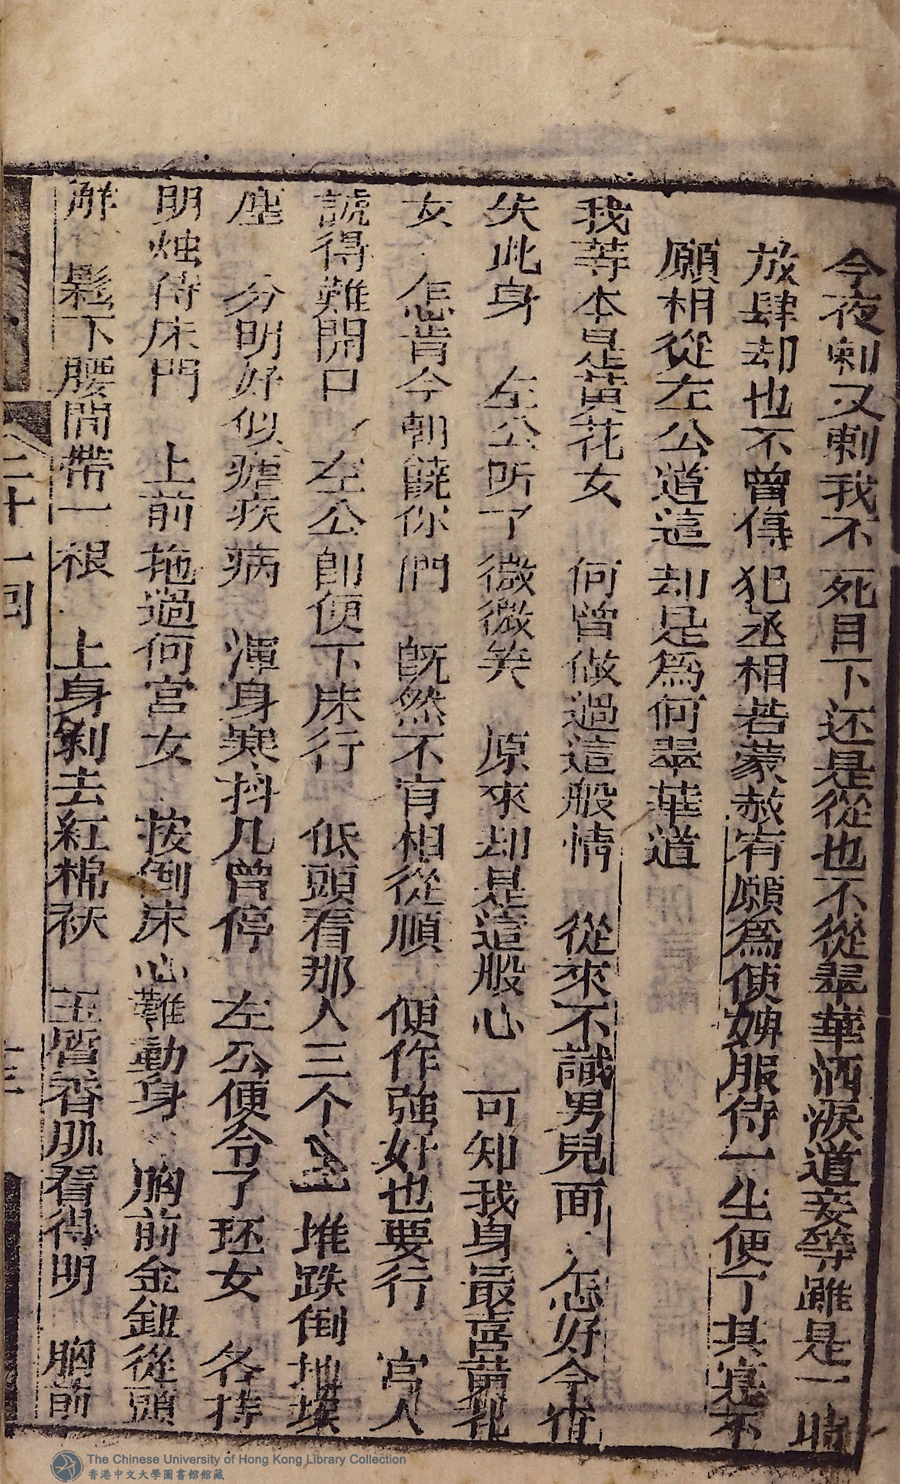 今夜剌又剌我不死目下还是從也不從翠華洒淚道妾等雖是一時
放肆却也不曾傷犯丞相若蒙赦宥願為使婢服侍一生便了其寔不
願相從左公道這却是為何翠華道
我等本是黃花女 何曾做過這般情 從來不識男兒面 怎好今宵
失此身 左公听了微微笑 原來却是這般心 可知我身最喜黃花
女 怎肯今朝饒你們 既然不肯相從順 便作強奸也要行 宮人
諕得難開口 左公即便下床行 低頭看那人三个 堆跌倒地埃
塵 分明好似瘧疾病 渾身寒抖几曾停 左公便令了环女 各持
明烛侍床門 上前拖過何宮女 按倒床心難動身 胸前金鈕從頭
解 鬆下腰間帶一根 上身剝去紅棉袄 玉脂香肌看得明 胸前
二十一回
十三
The Chinese University of Hong Kong Library Collection
香港中文大學圖書館館藏